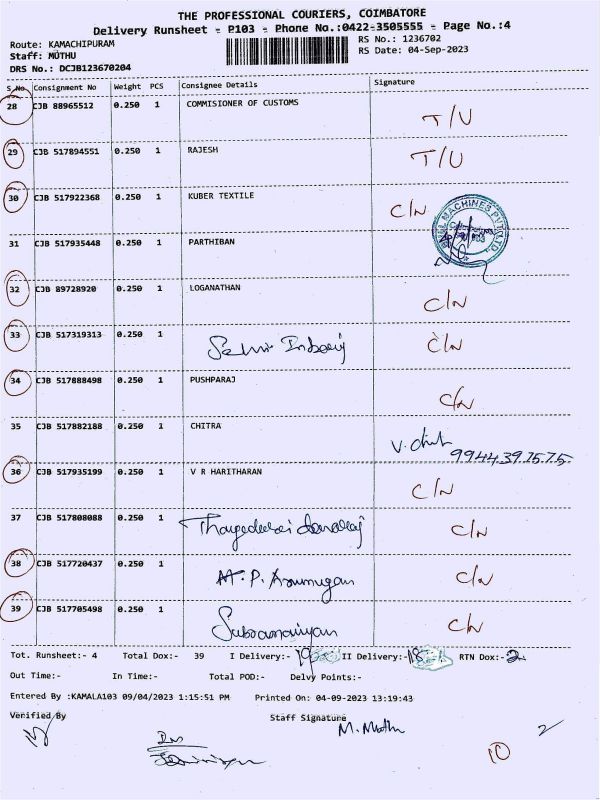 THE PROFESSIONAL COURIERS, COIMBATORE
Delivery Runsheet - P103 - Phone No.:0422-3505555 - Page No.:4
Route: KAMACHIPURAM RS No.: 1236702
Staff: MUTHU RS Date: 04-Sep-2023
DRS No.: DCJB123670204
S.No Consignment No Weight PCS Consignee Details Signature
28 CJB 88965512 0.250 1 COMMISIONER OF CUSTOMS T/U
29 CJB 517894551 0.250 1 RAJESH T/U
30 CJB 517922368 0.250 1 KUBER TEXTILE C/N
MACHINES PVT LTD
31 CJB 517935448 0.250 1 PARTHIBAN
32 CJB 89728920 0.250 1 LOGANATHAN C/N
33 CJB 517319313 0.250 1 C/N
34 CJB 517888498 0.250 1 PUSHPARAJ C/N
35 CJB 517882188 0.250 1 CHITRA V.
9944391575
36 CJB 517935199 0.250 1 V R HARITHARAN C/N
37 CJB 517808088 0.250 1 C/N
38 CJB 517720437 0.250 1 M. P. Arumugam C/N
39 CJB 517705498 0.250 1 C/N
Tot. Runsheet:- 4 Total Dox:- 39 I Delivery:- 19 II Delivery:- 18 RTN Dox:- 2
Out Time:- In Time:- Total POD:- Delvy Points:-
Entered By :KAMALA103 09/04/2023 1:15:51 PM Printed On: 04-09-2023 13:19:43
Verified By Staff Signature
M. Muthu
10